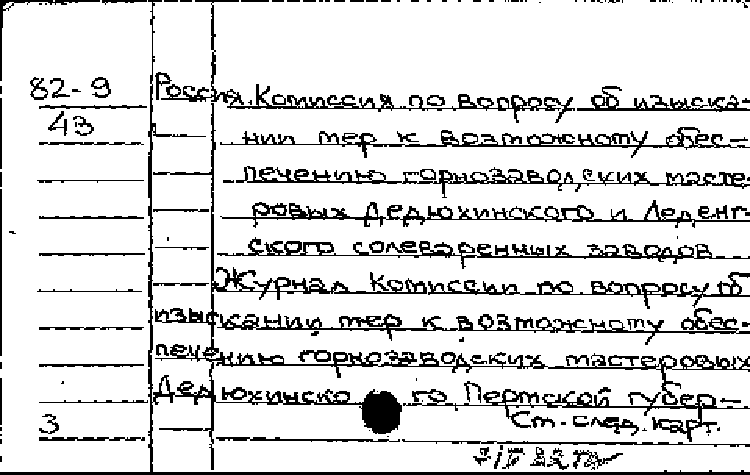 82-9 Россия. Комиссия по вопросу об изыска-
43 нии мер к возможному обес-
печению горнозаводских масте-
ровых Дедюхинского и Леденг-
ского солеваренных заводов
Журнал Комиссии по вопросу об
изыскании мер к возможному обес-
печению горнозаводских мастеровых
Дедюхинского Пермской губер-
3 См. след. карт.